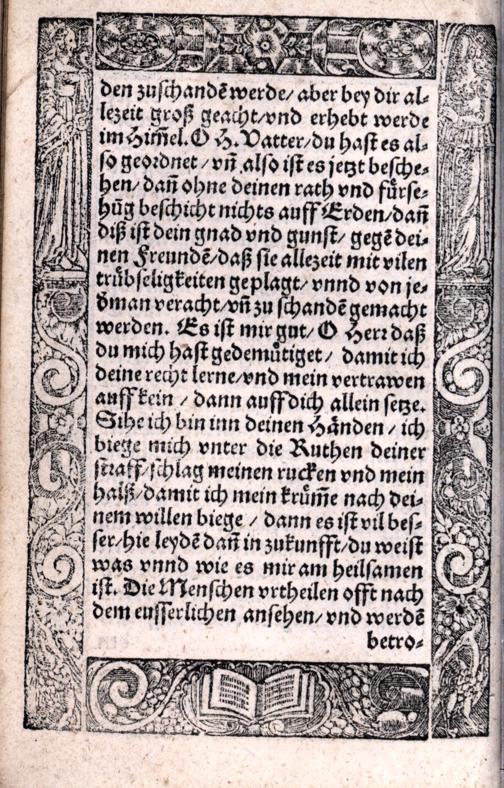 den zuschandē werde/ aber bey dir al⸗
lezeit groß geacht/vnd erhebt werde
im Him̃el. O H. Vatter/du hast es al⸗
so geordnet/vñ also ist es jetzt besche⸗
hen/dañ ohne deinen rath vnd fürse⸗
hūg beschicht nichts auff Erden/dañ
diß ist dein gnad vnd gunst/ gegē dei⸗
nen Freundē/daß sie allezeit mit vilen
trübseligkeiten geplagt/ vnnd von je⸗
d̕man veracht/vñ zu schandē gemacht
werden. Es ist mir gut/ O Herr daß
du mich hast gedemütiget/ damit ich
deine recht lerne/vnd mein vertrawen
auff kein/ dann auff dich allein setze.
Sihe ich bin inn deinen Händen/ ich
biege mich vnter die Ruthen deiner
straff/schlag meinen rucken vnd mein
halß/damit ich mein krüm̃e nach dei⸗
nem willen biege/ dann es ist vil bes⸗
ser/hie leydē dañ in zukunfft/du weist
was vnnd wie es mir am heilsamen
ist. Die Menschen vrtheilen offt nach
dem eusserlichen ansehen/ vnd werdē
betro⸗